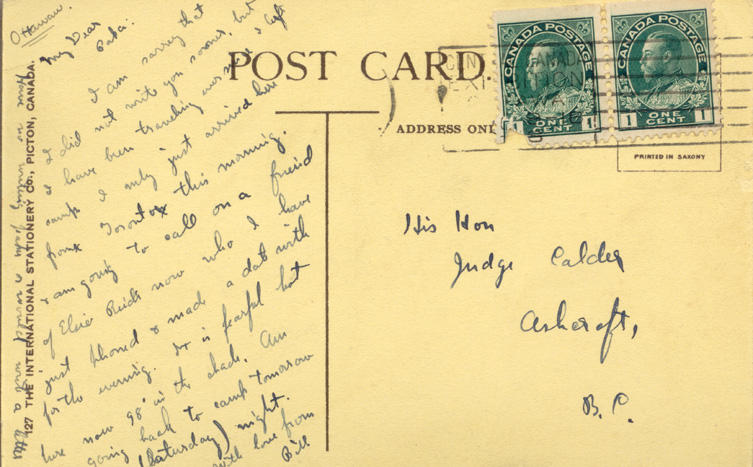 Ottawa.
My Dear
Baba:
I am sorry that
I did not write you sooner, but
I have been traveling ever since I left
camp I only just arrived here
from Toronto this morning.
I am going to call on a friend
of Elsie Reids now who I have
just phoned & made a date with
for the evening. It is fearful hot
here now 98° in the shade. Am
going back to camp tomorrow
(Saturday) night.
with love from
Bill
127 THE INTERNATIONAL STATIONERY CO., PICTON, CANADA.
POST CARD.
ADDRESS ONL
CANADA POSTAGE
1 ONE CENT 1
CANADA POSTAGE
1 ONE CENT 1
CANADIAN
EXHIBITION
PRINTED IN SAXONY
His Hon
Judge Calder
Ashcroft,
B.C.